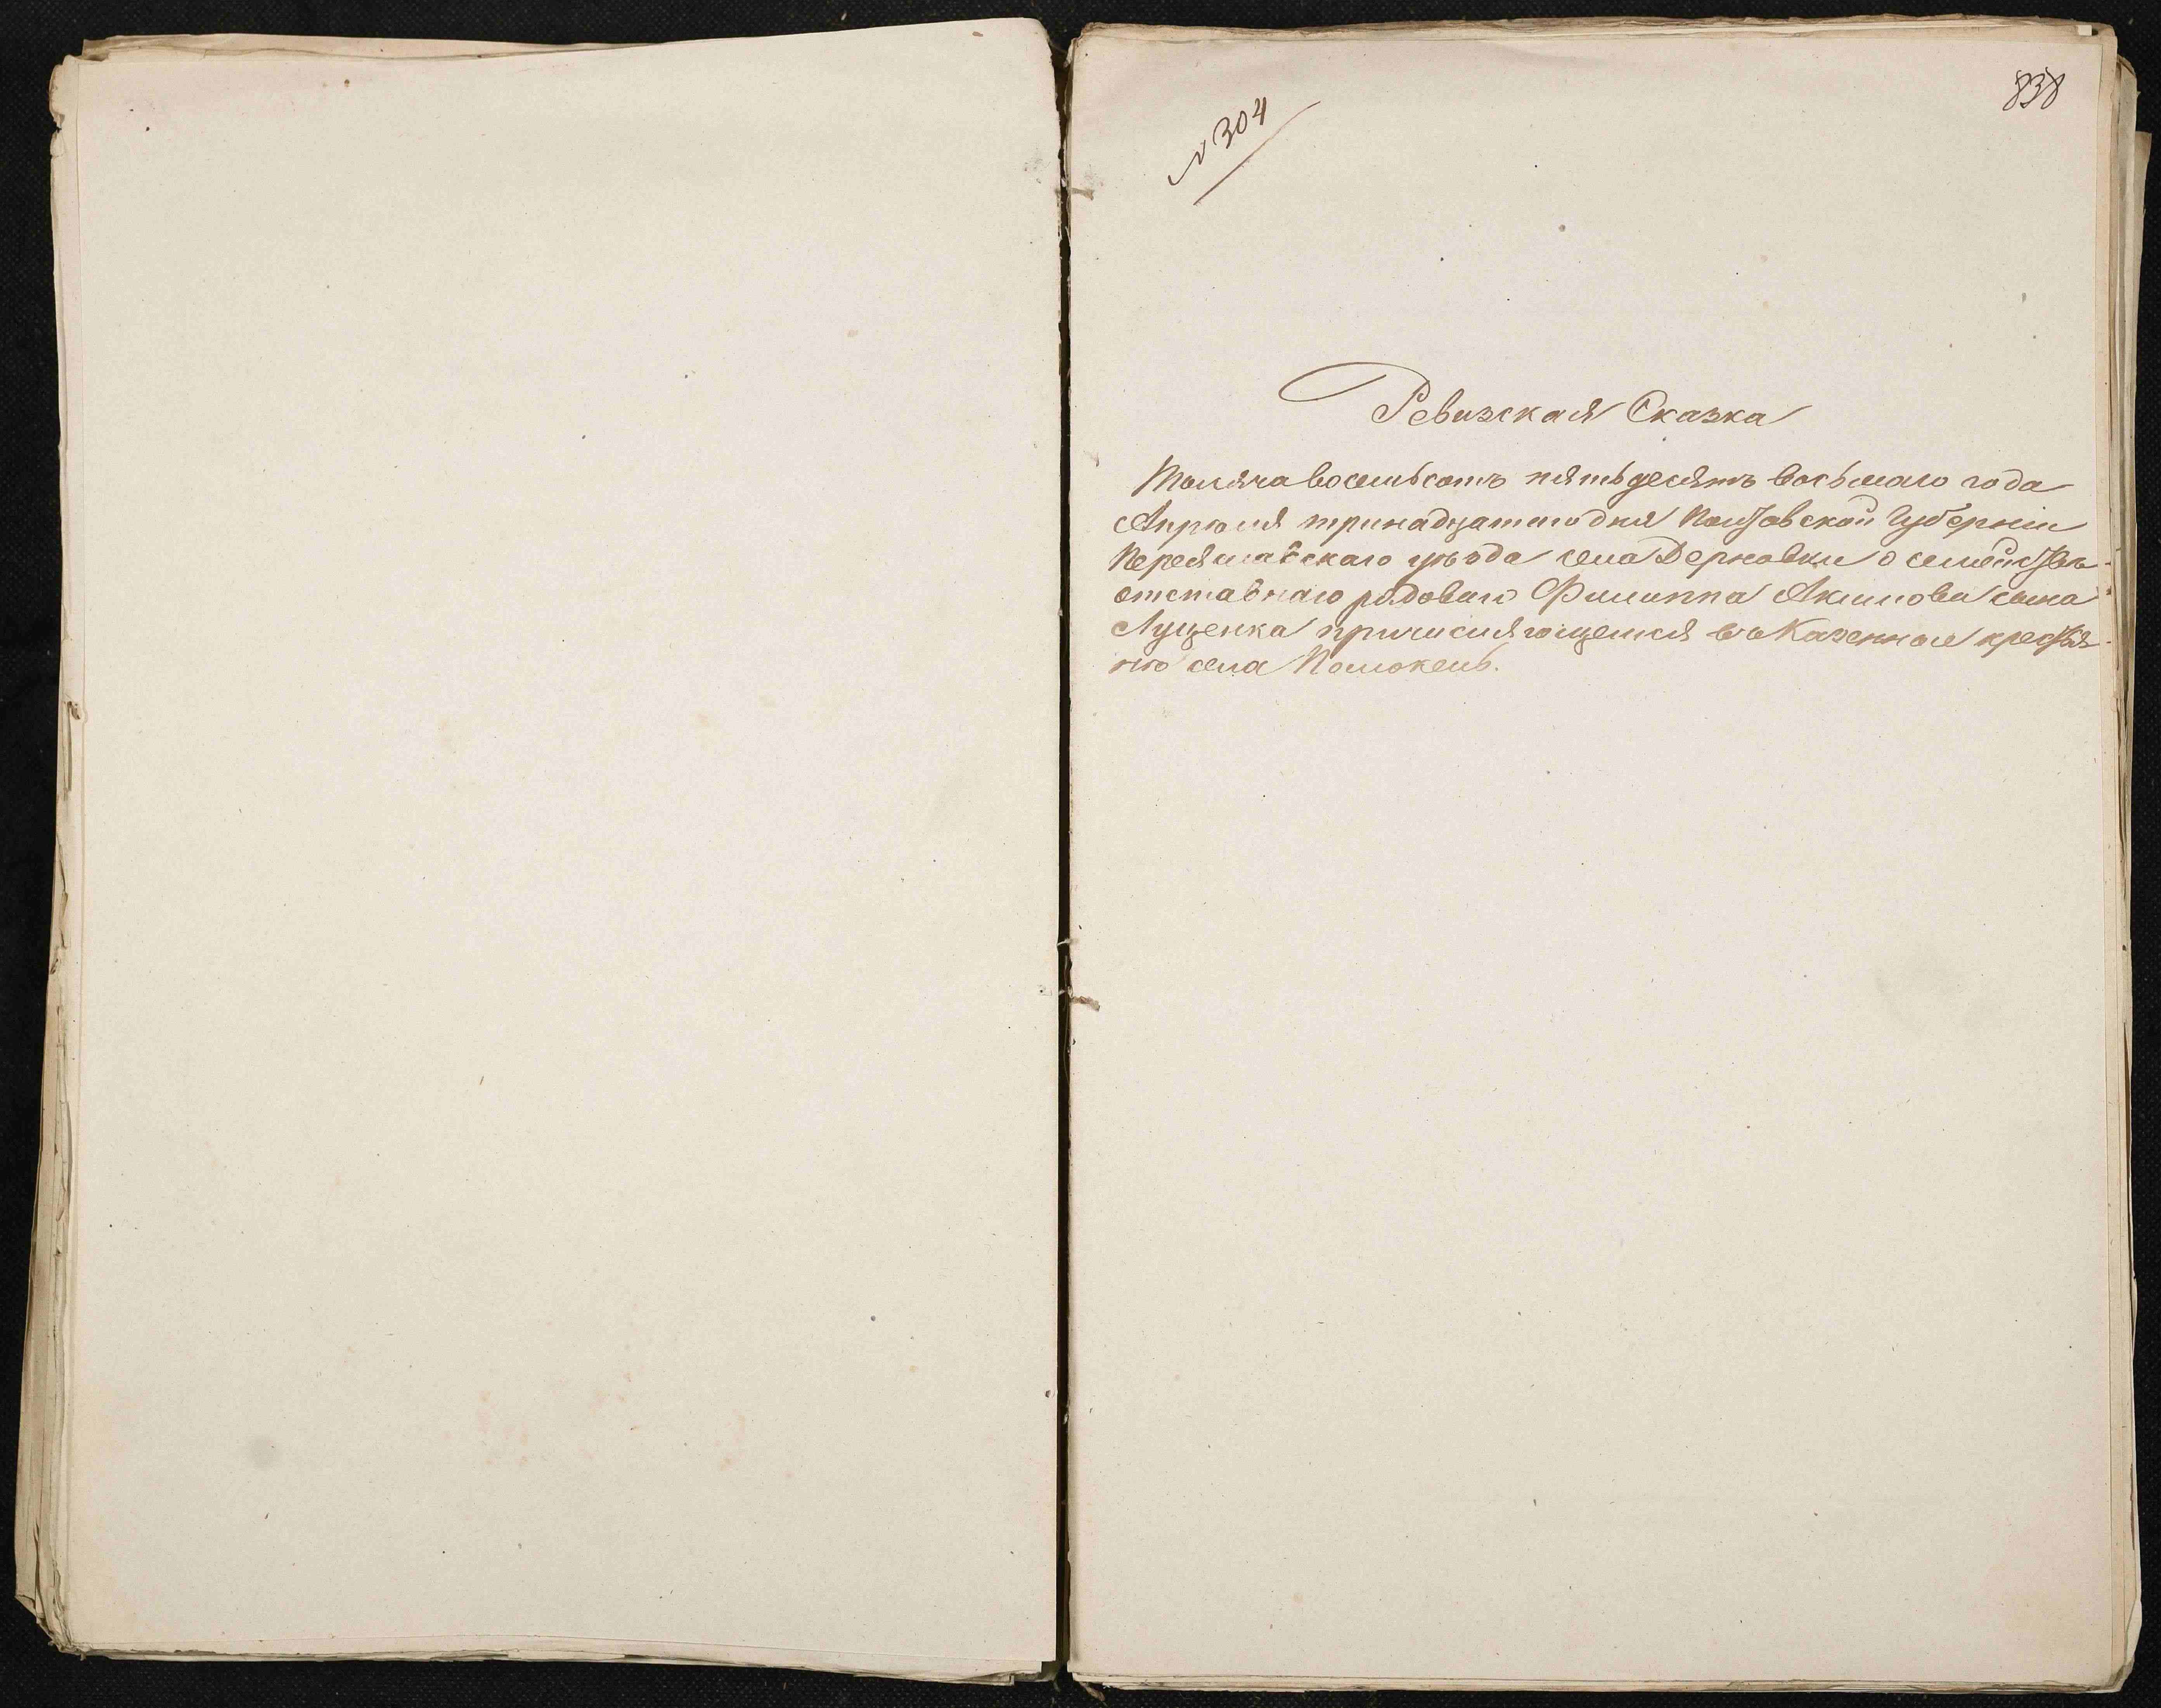 838
№ 304
Ревизская Сказка
Тысяча восемьсотъ пятьдесятъ восьмаго года
Апрѣля тринадцатого дня Полтавской Губерніи
Переяславскаго уѣзда села Дерновки о семействѣ
отставнаго рядоваго Филиппа Акимова сына
Луценка причисляющемся въ Казенное крестья-
не села Помокель.